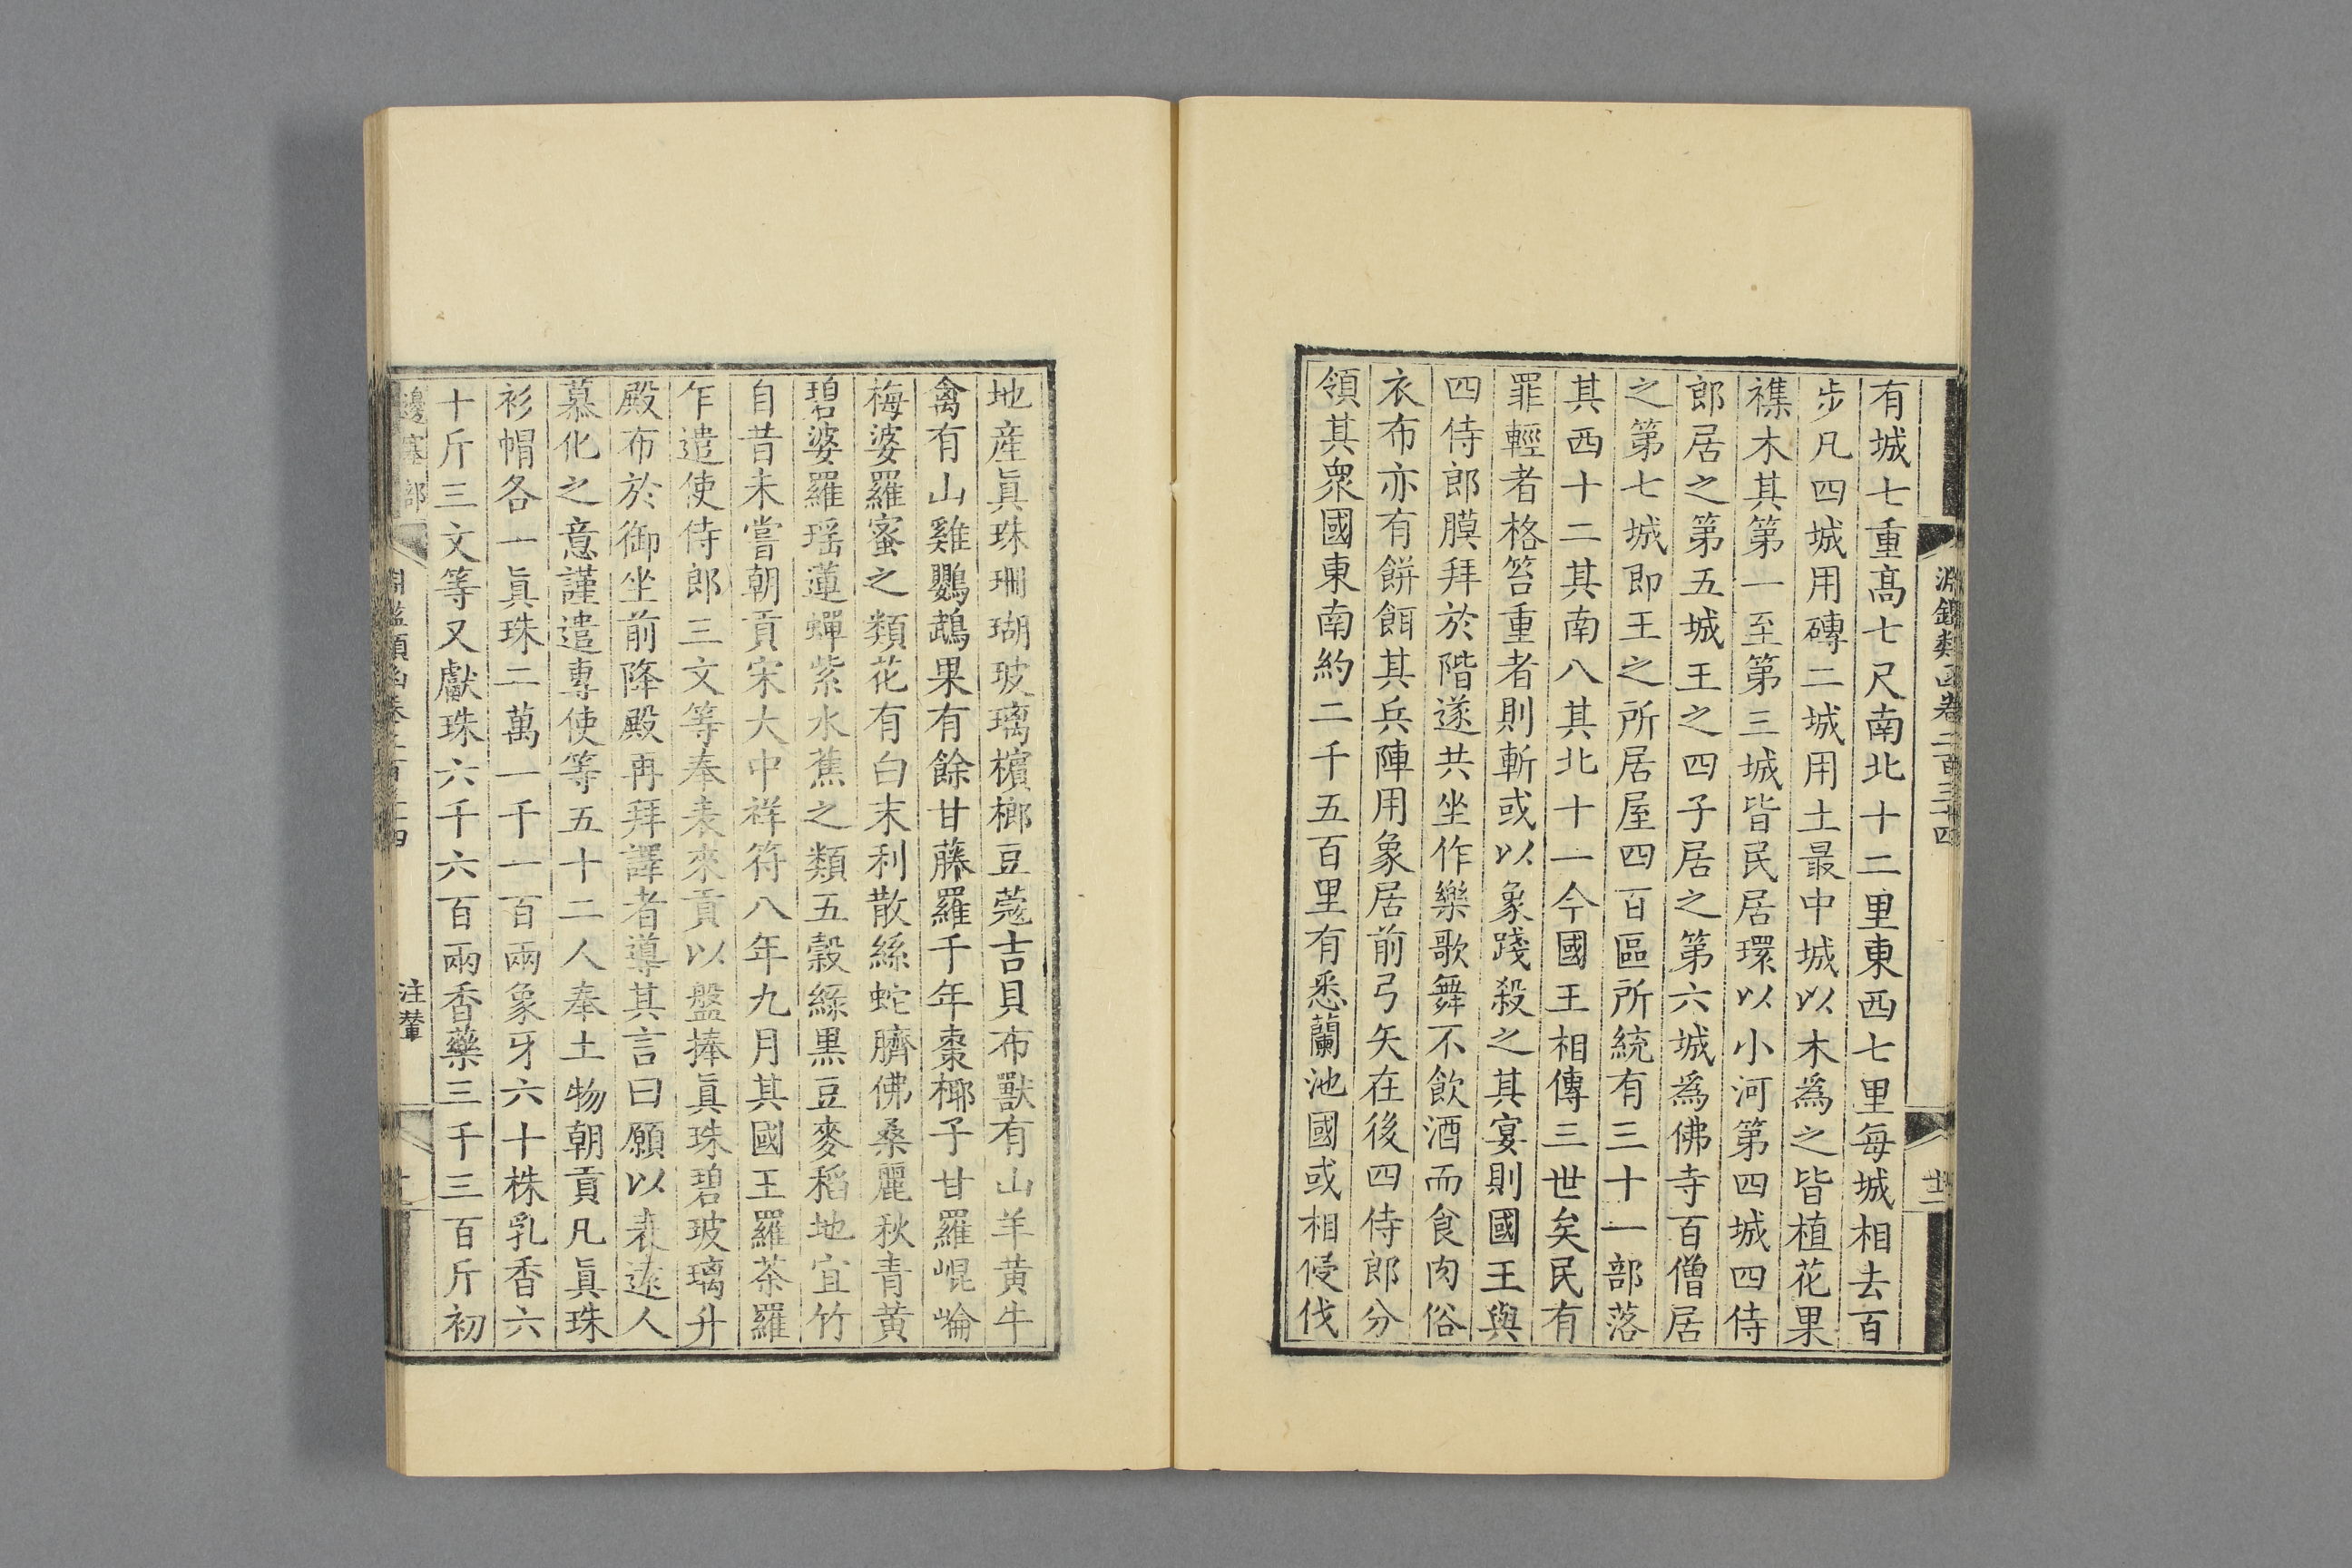 淵鑑類函卷二百三十四
有城七重高七尺南北十二里東西七里每城相去百
步凡四城用磚二城用土最中城以木為之皆植花果
襍木其第一至第三城皆民居環以小河第四城四侍
郎居之第五城王之四子居之第六城為佛寺百僧居
之第七城即王之所居屋四百區所統有三十一部落
其西十二其南八其北十一今國王相傳三世矣民有
罪輕者格笞重者則斬或以象踐殺之其宴則國王與
四侍郎膜拜於階遂共坐作樂歌舞不飲酒而食肉俗
衣布亦有餅餌其兵陣用象居前弓矢在後四侍郎分
領其衆國東南約二千五百里有悉蘭池國或相侵伐
地產眞珠珊瑚玻璃檳榔豆蔻吉貝布獸有山羊黄牛
禽有山雞鸚鵡果有餘甘藤羅千年棗椰子甘羅崐崘
梅婆羅蜜之類花有白末利散絲蛇臍佛桑麗秋青黄
碧婆羅瑶蓮蟬紫水蕉之類五穀綠黒豆麥稻地宜竹
自昔未嘗朝貢宋大中祥符八年九月其國王羅茶羅
乍遣使侍郎三文等奉表來貢以盤捧眞珠碧玻璃升
殿布於御坐前降殿再拜譯者導其言曰願以表遠人
慕化之意謹遣專使等五十二人奉土物朝貢凡眞珠
衫帽各一眞珠二萬一千一百兩象牙六十株乳香六
十斤三文等又獻珠六千六百兩香藥三千三百斤初
邊塞部
淵鑑類函卷二百三十四
注輦